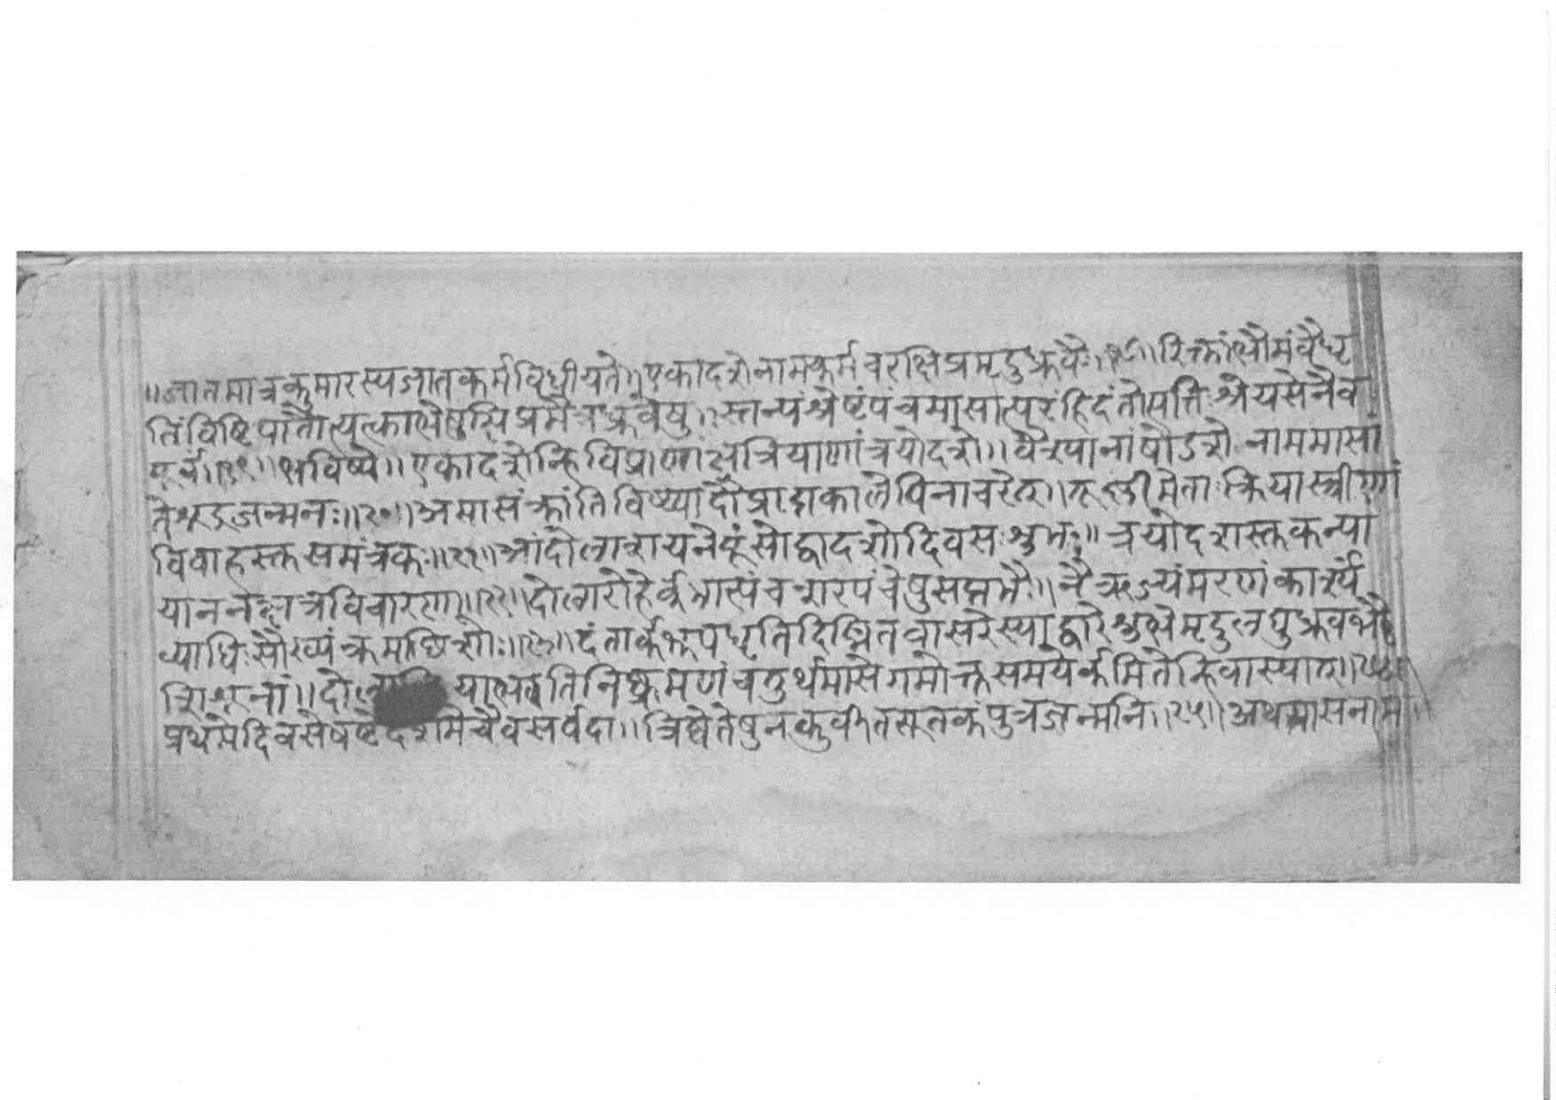 ॥जातमात्रकुमारस्यजातकर्मविधीयते॥एकादशेनामकर्मचरक्षिप्रमृदुध्रुवैः॥१८॥रिक्तांभौमंवैधृ
तिंविष्टिपातौ क्षिप्रमैत्रध्रुवेषु॥स्तन्यंश्रेष्टंपंचमासात्परंहिदंतोत्पत्तिःश्रेयसेनैव
पूर्वं॥१९॥भविष्ये॥एकादशेन्हिविप्राणांक्षत्रियाणांत्रयोदशे॥वैश्यानांषोडशेनाममासां
तेशूद्रजन्मनः॥२०॥अमासंक्रांतिविष्ट्यादौप्राप्तकालेपिनाचरेत्॥तूष्णीमेताःक्रियास्त्रीणां
विवाहस्तुसमंत्रकः॥२१॥आंदोलाशयनेपुंसोद्वादशोदिवसःशुभः॥त्रयोदशस्तुकन्या
याननक्षत्रविचारणा॥२२॥दोलारोहेर्कभात्पंचशरपंचेषुसप्तभैः॥नैरुज्यंमरणंकार्श्यं
व्याधिःसौख्यंक्रमाछिशोः॥२३॥दंतार्कभूपधृतिदिङ्मितवासरेस्याद्वारेशुभेमृदुलघुध्रुवभैः
शिशूनां॥दो निष्क्रमणंचतुर्थमासेगमोक्तसमयेर्कमितेन्हिवास्यात्॥२४॥
प्रथमेदिवसेषष्टेदशमेचैवसर्वदा॥त्रिष्वेतेषुनकुर्वीतसूतकंपुत्रजन्मनि॥२५॥अथमासनाम